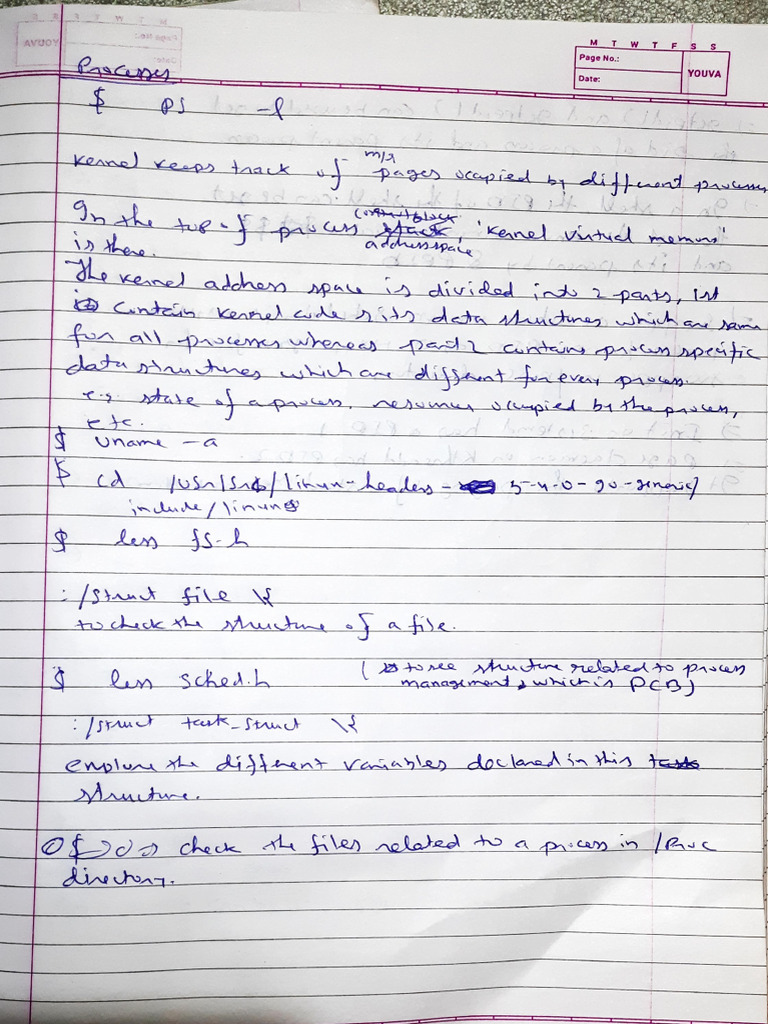 M T W T F S S
Page No.:
Date:
YOUVA
Processes
$ ps -l
m/y
Kernel keeps track of pages ocupied by different processes
control block
In the top of process stack 'Kernel virtual memory'
address space
is there.
The kernel address space is divided into 2 parts, 1st
is contain kernel code & its data structures which are same
for all processes whereas part 2 contains process specific
data structures which are different for every process.
e.g. state of a process, resources occupied by the process,
etc.
$ uname -a
$ cd /usr/src/linux-headers- 5-4-0-90-generic/
include/linux
$ less fs.h
:/struct file \{
to check the structure of a file.
$ less sched.h ( to see structure related to process
management, which is PCB)
:/struct task_struct \{
explore the different variables declared in this task
structure.
check the files related to a process in /proc
directory.